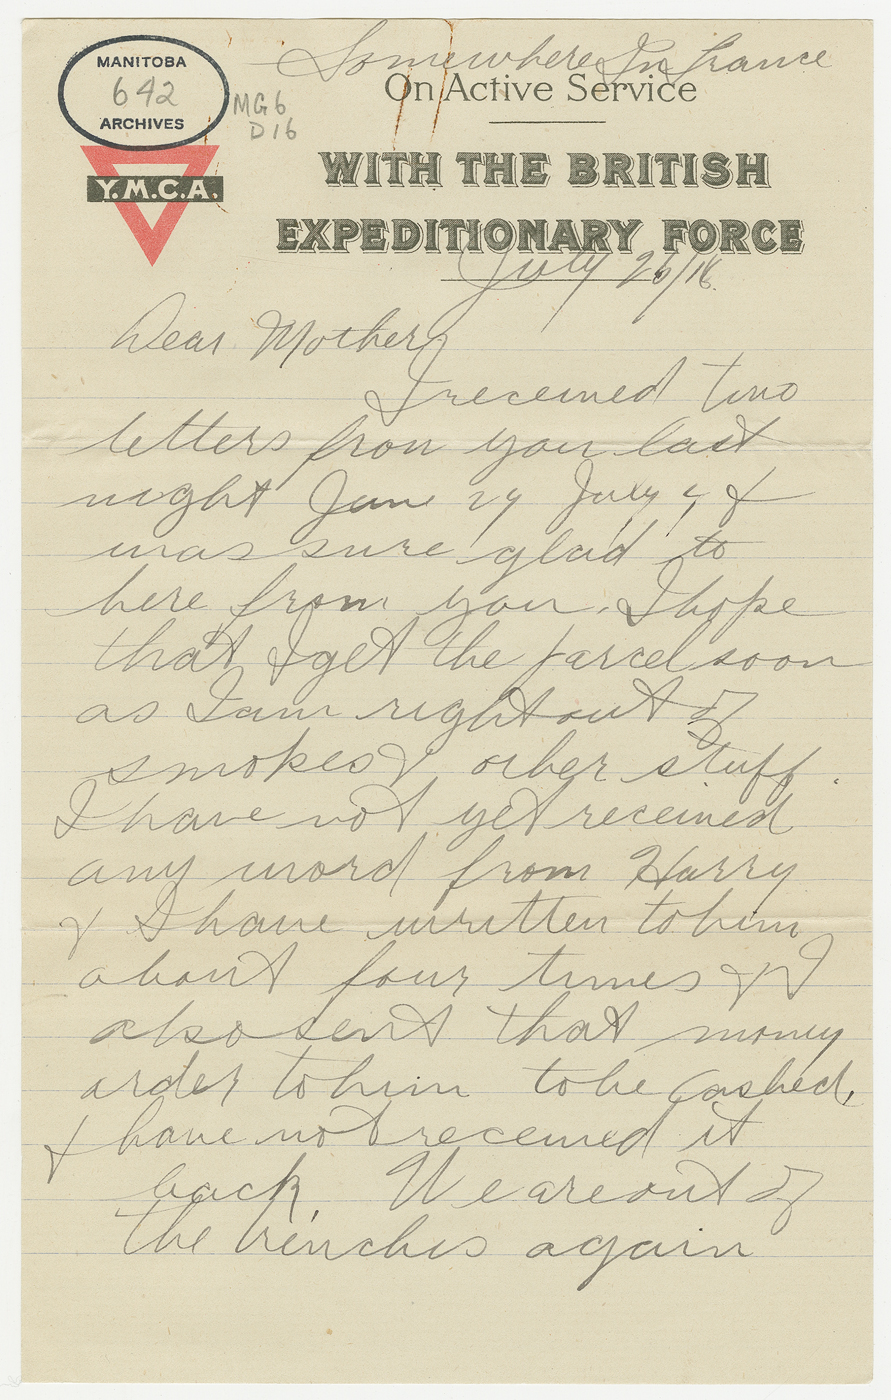 Somewhere In France
MANITOBA
642
ARCHIVES
MG6
D16
Y.M.C.A.
On Active Service
WITH THE BRITISH
EXPEDITIONARY FORCE
July 26/18.
Dear Mother,
I received two
letters from you last
night June 29 July &
was sure glad to
here from you. I hope
that I get the parcel soon
as I am right out of
smokes & other stuff.
I have not yet received
any word from Harry
& I have written to him
about four times & I
also sent that money
order to him to be cashed,
& have not received it
back. We are out of
the trenches again